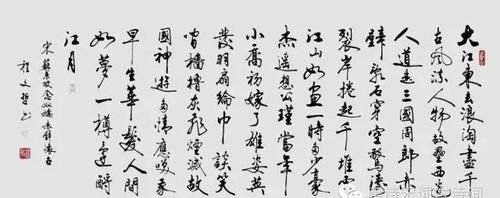 大江東去浪淘盡千
古風流人物故壘西邊
人道是三國周郎赤
壁亂石穿空驚濤
裂岸捲起千堆雪
江山如畫一時多少豪
傑遙想公瑾當年
小喬初嫁了雄姿英
發羽扇綸巾談笑
間檣櫓灰飛煙滅故
國神遊多情應笑我
早生華髮人間
如夢一樽還酹
江月
宋蘇東坡念奴嬌赤壁懷古